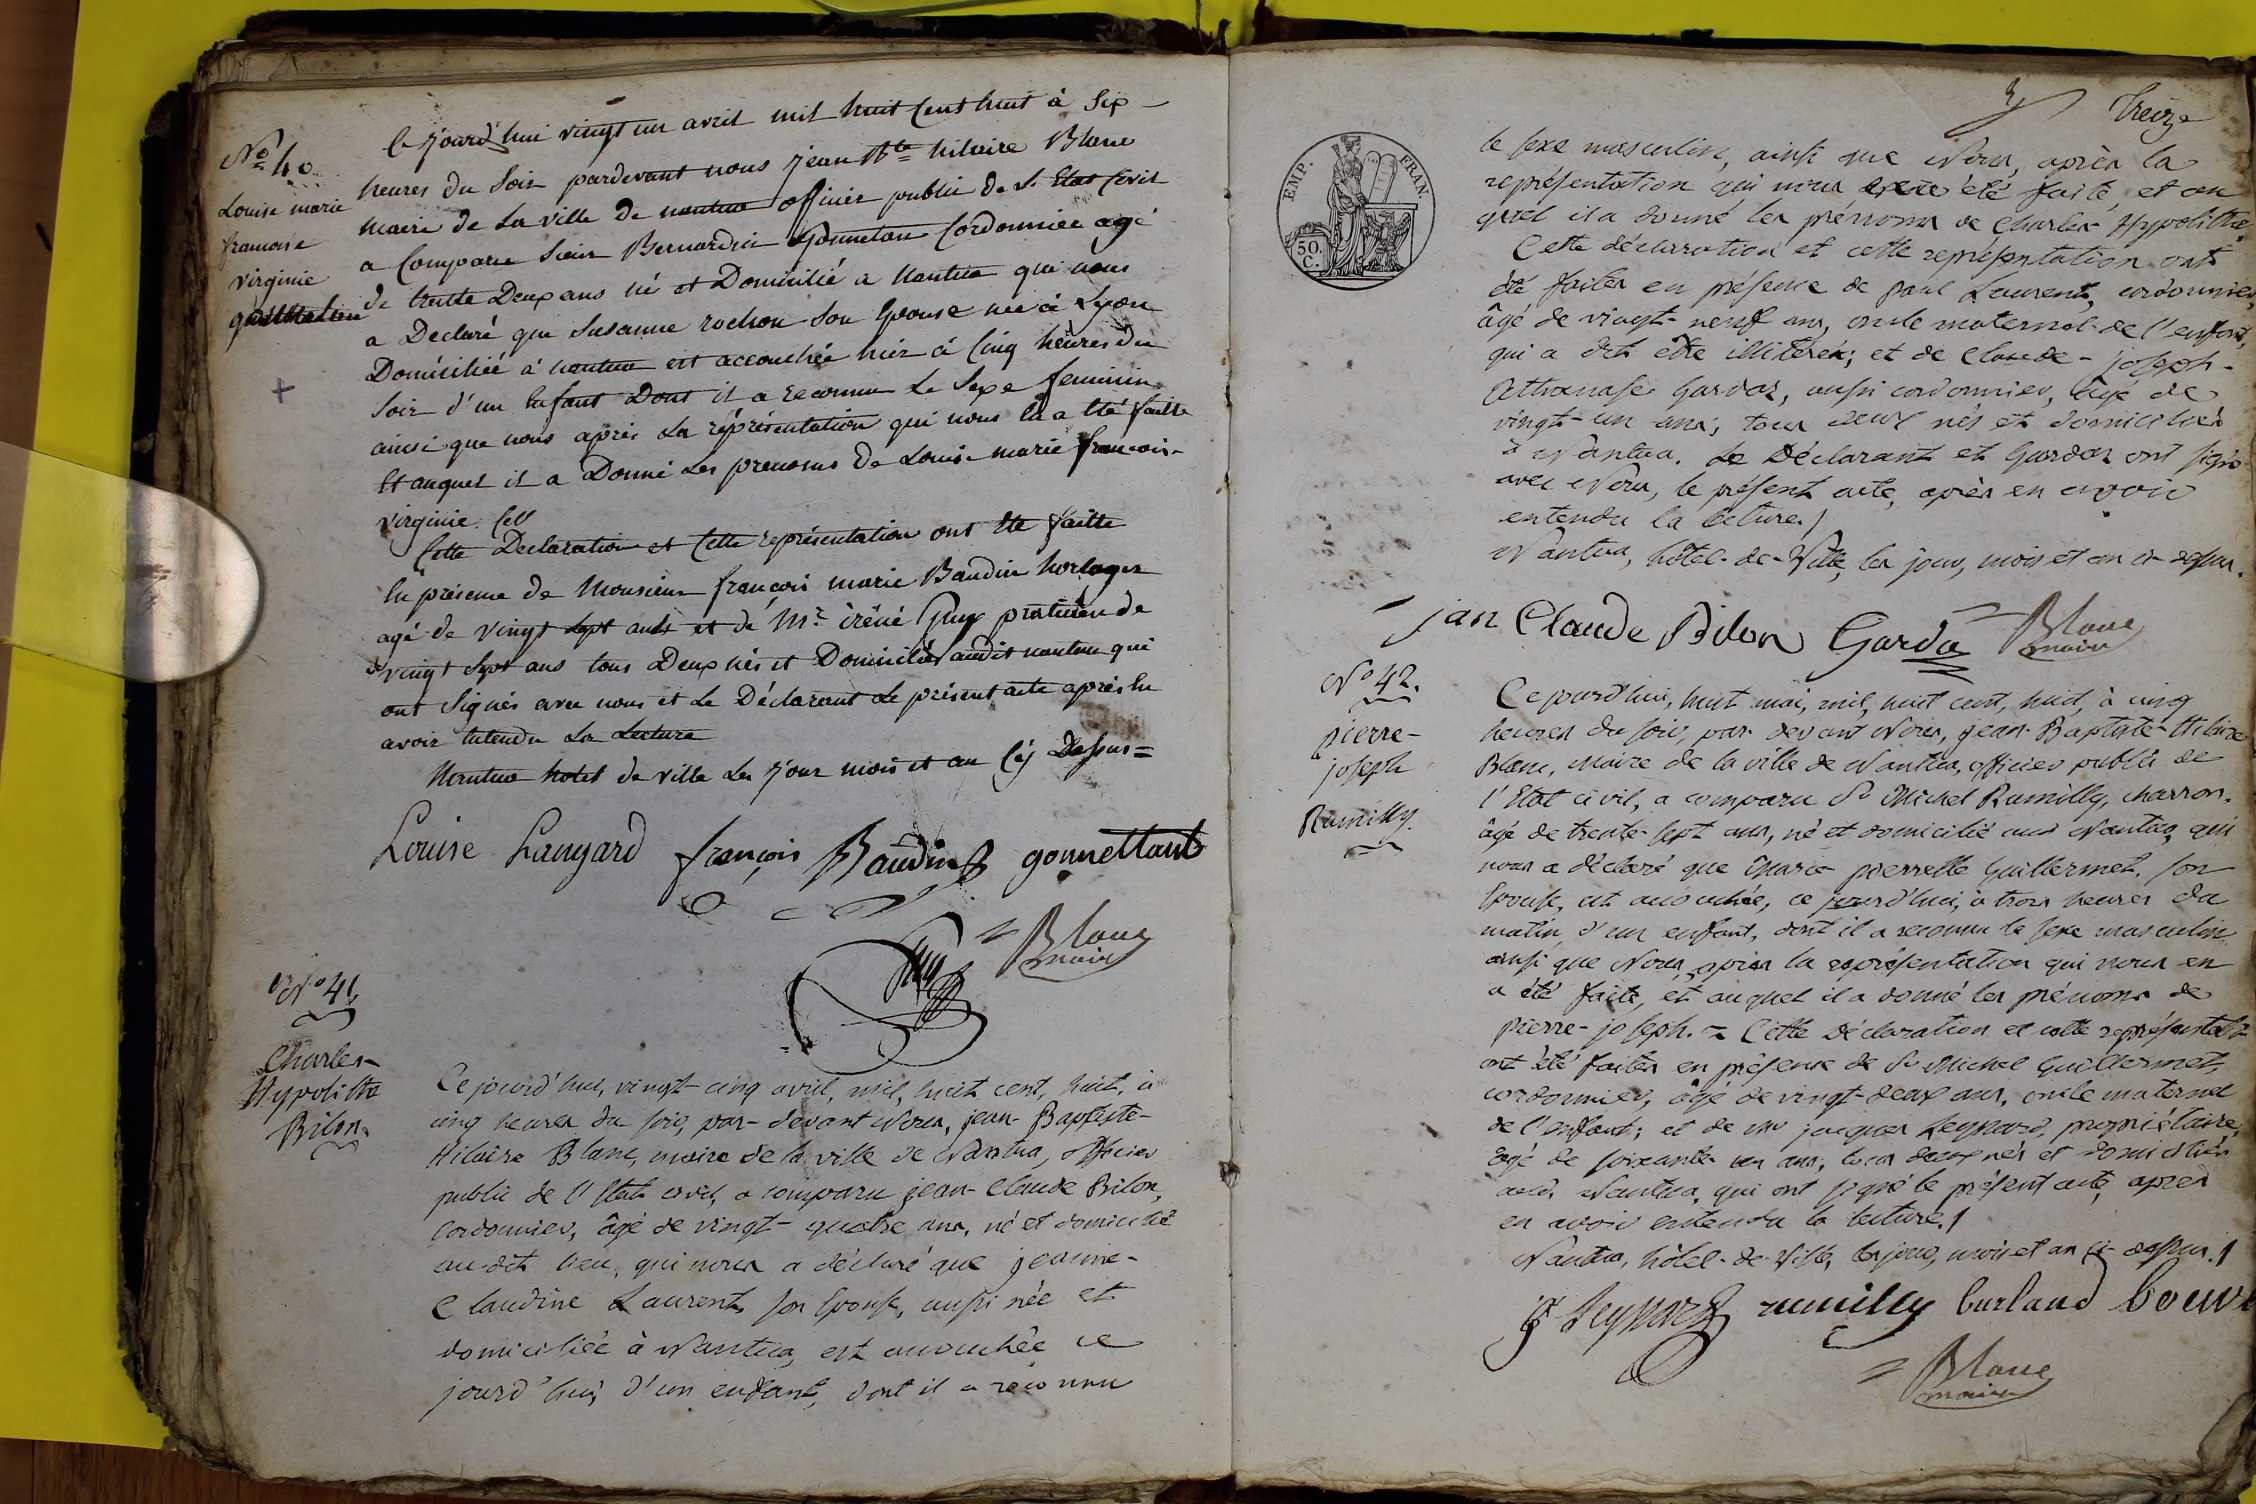 N.o 40.
Louise marie
francoise
virginie
gonnettan
Ce jourd'hui vingt un avril mil huit Cent huit à Six
heures du Soir pardevant nous jean Bte hilaire Blanc
maire de La ville de nantua officier public de L'Etat Civil
a Comparu Sieur Bernardin Gonnetan Cordonnier agé
de trente Deux ans né et Domicilié a Nantua qui nous
a Declaré que Susanne rochon Son Epouse née à Lyon
Domiciliée à nantua est accouchée hier à Cinq heures du
Soir d'un Enfant Dont il a reconnu Le Sexe feminin
ainsi que nous après La réprésentation qui nous en a été faitte
Et auquel il a Donné Les prenoms de Louise marie francois-
virginie. Cett
Cette Declaration et Cette représentation ont été faitte
En présence de Monsieur françois marie Baudin horloger
agé de vingt Sept ans et de Mr. iréné Guy praticien de
vingt Sept ans tous Deux nés et Domiciliés audit nantua qui
ont Signés avec nous et Le Déclarant Le présent acte après En
avoir Entendu La Lecture
Nantua hotel de ville Les jour mois et an Cÿ Dessus=
Louise Lanyard françois Baudin gonnettant
Guy
Blanc
maire
N.o 41.
Charles-
Hypolithe
Bilon.
Ce jourd'hui, vingt-cinq avril, mil, huit cent, huit, à
cinq heures du soir, par-devant Nous, jean-Baptiste-
Hilaire Blanc, maire de la ville de Nantua, officier
public de l'Etat civil, a comparu jean-Claude Bilon,
Cordonnier, âgé de vingt-quatre ans, né et domicilié
au-dit lieu, qui nous a déclaré que jeanne-
Claudine Laurent, son Epouse, aussi née et
domiciliée à Nantua, est accouchée ce
jourd'hui, d'un enfant, dont il a reconnu
Treize
EMP. FRAN.
50.
C.
le sexe masculin, ainsi que Nous, après la
représentation qui nous en a été faite, et au
quel il a donné les prénoms de Charles Hypolithe.
Cette déclaration et cette représentation ont
été faites en présence de paul Laurent, cordonnier,
âgé de vingt-neuf ans, oncle maternel de l'enfant,
qui a dit être illitéré; et de Claude-joseph-
Athanase Gardaz, aussi cordonnier, âgé de
vingt-un ans; tous deux nés et domiciliés
à Nantua. Le Déclarant et Gardaz ont signé
avec Nous, le présent acte, après en avoir
entendu la lecture./
Nantua, hôtel-de-Ville, les jour, mois et an ci-dessus.
jan Claude Bilon Garda Blanc
maire
N.o 42.
pierre-
joseph
Rumilly.
Ce jourd'hui, huit mai, mil, huit cent, huit, à cinq
heures du soir, par-devant Nous, jean-Baptiste-Hilaire
Blanc, Maire de la ville de Nantua, officier public de
l'Etat civil, a comparu Sr Michel Rumilly, charron,
âgé de trente-sept ans, né et domicilié aud. Nantua, qui
nous a déclaré que Marie-pierrette Guillermet, son
Epouse, est accouchée, ce jourd'hui, à trois heures du
matin, d'un enfant, dont il a reconnu le sexe masculin
ainsi que Nous, après la représentation qui nous en
a été faite, et auquel il a donné les prénoms de
pierre-joseph. = Cette Déclaration et cette représentat.on
ont été faites en présence de Sr Michel Guillermet,
cordonnier, âgé de vingt-deux ans, oncle maternel
de l'enfant; et de Mr jacques Leynard, propriétaire,
âgé de soixante un ans, tous deux nés et domiciliés
aud. Nantua, qui ont signé le présent acte, après
en avoir entendu la lecture./
Nantua, hôtel-de-Ville, les jour, mois et an ci-dessus./
rumilly burland bouv
Blanc
maire